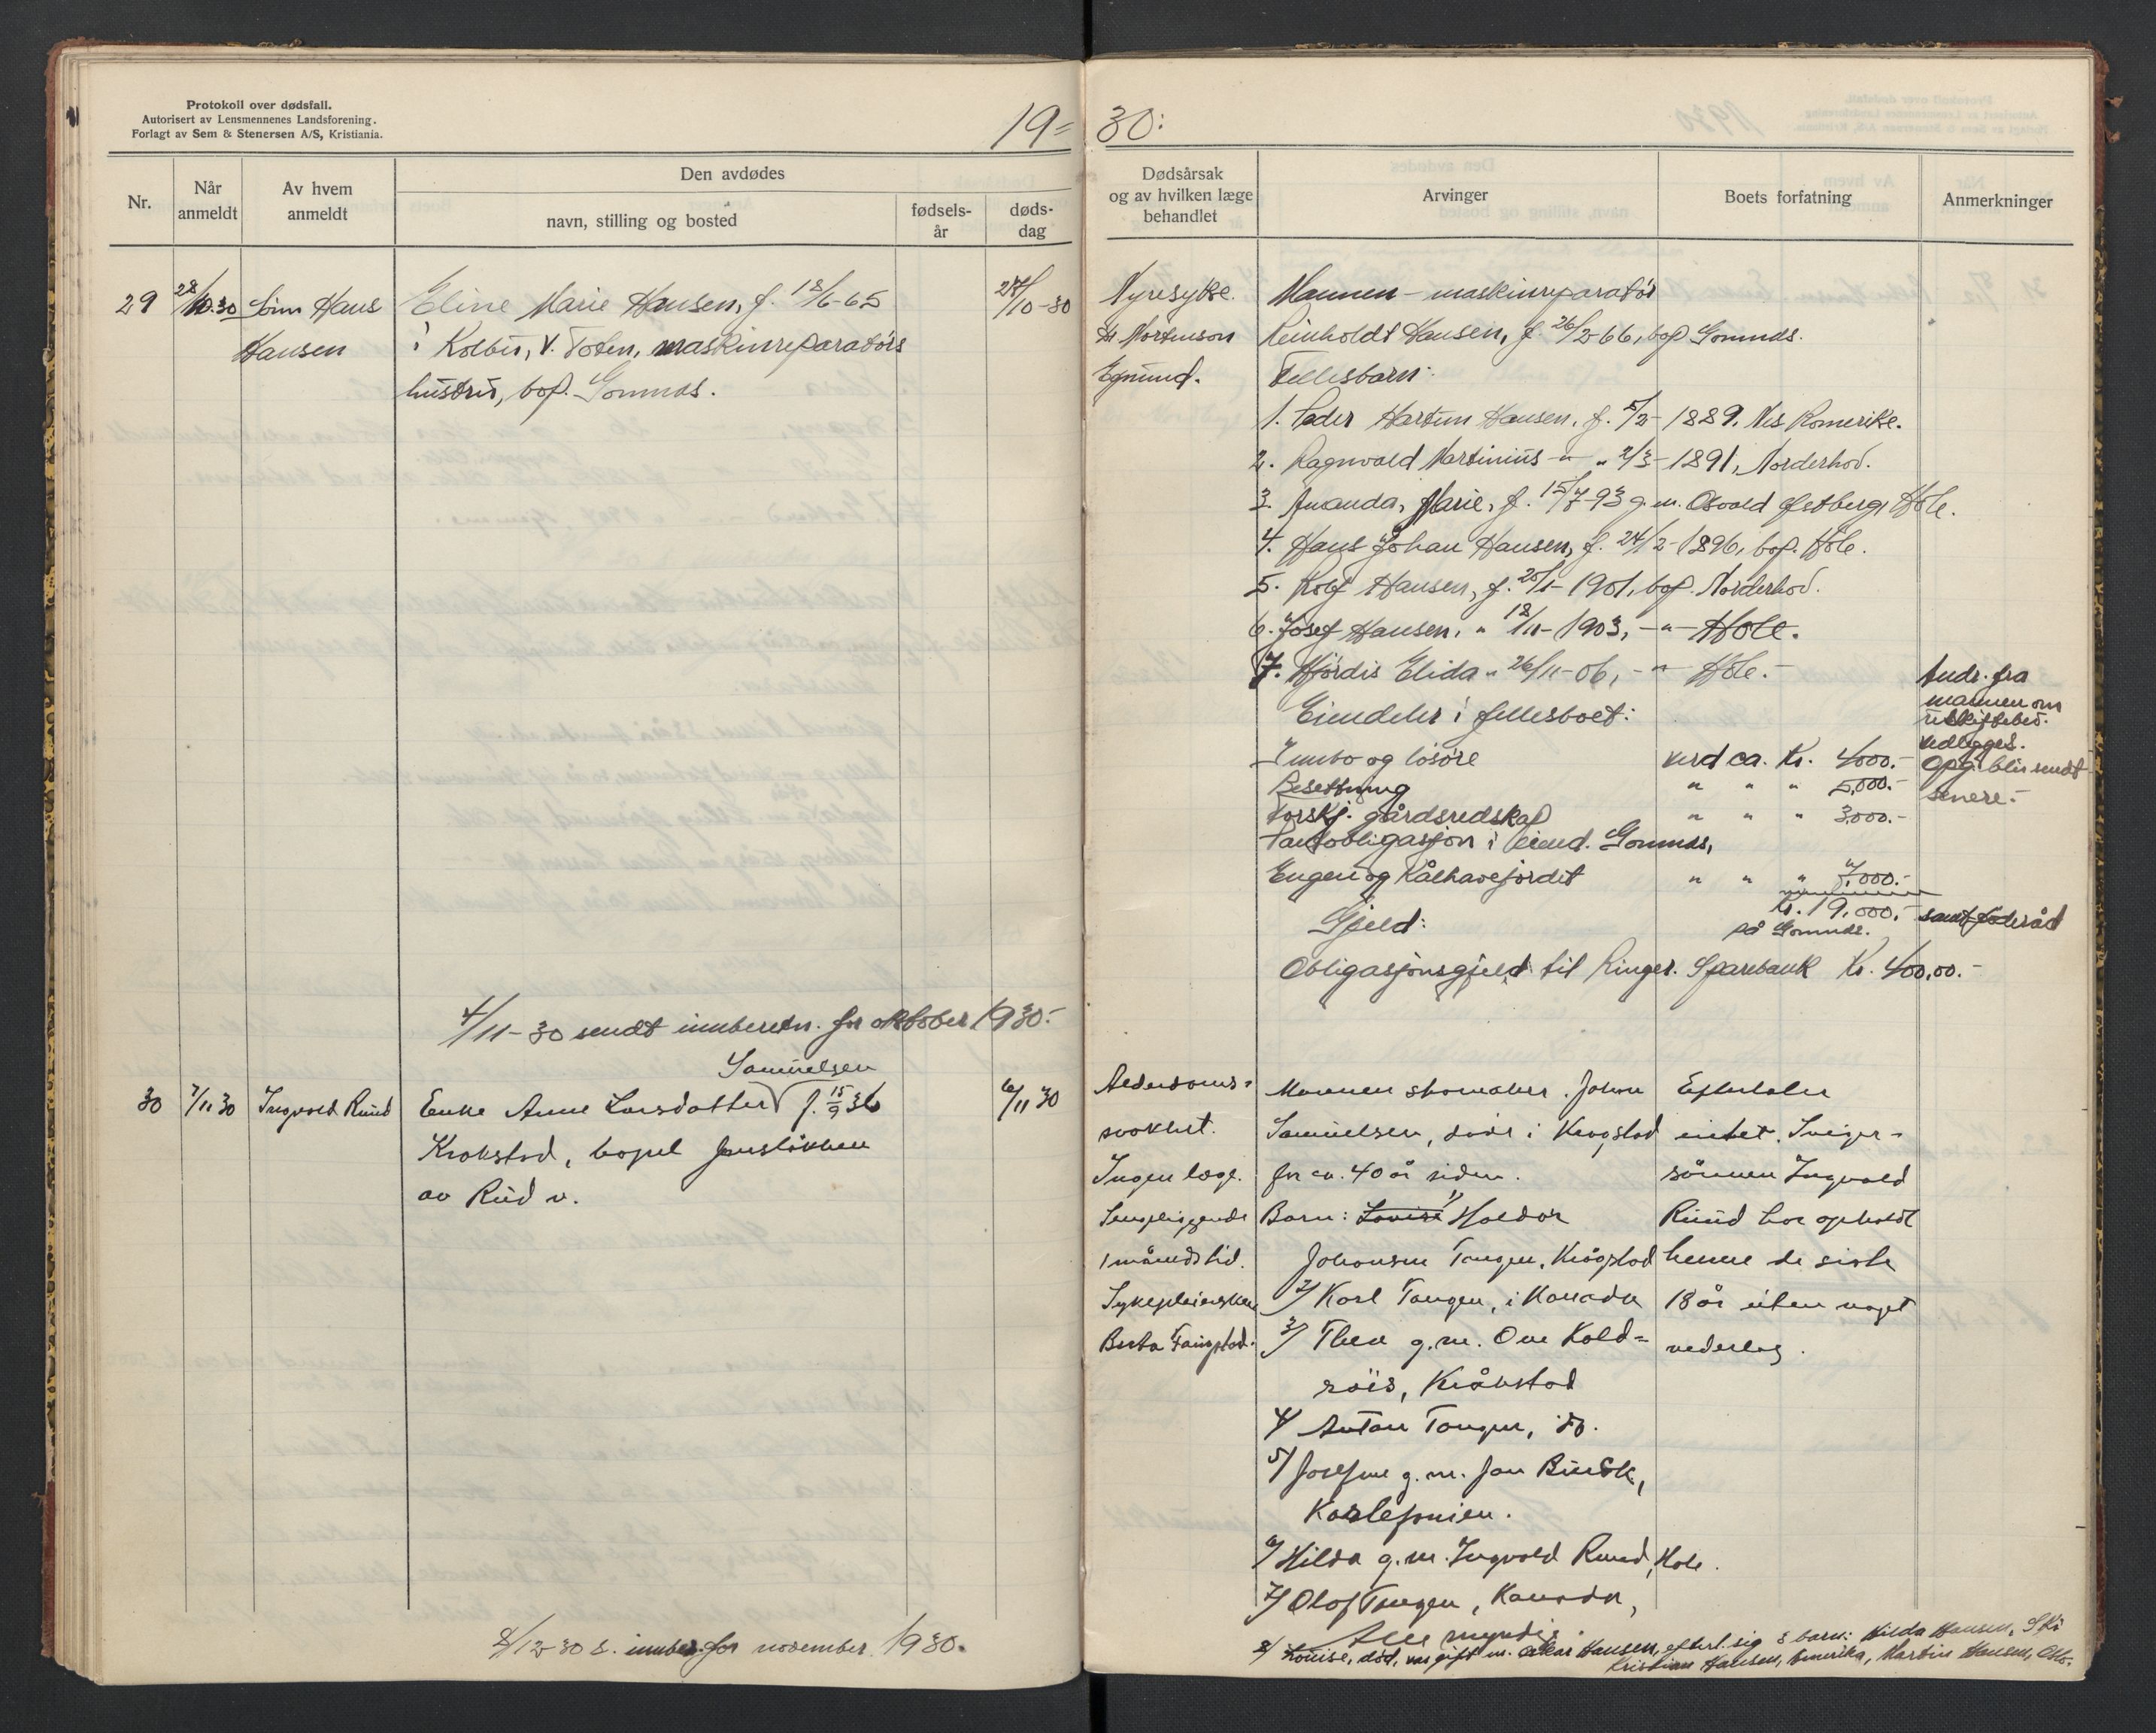 Protokoll over dødsfall.
Autorisert av Lensmennenes Landsforening.
Forlagt av Sem & Stenersen A/S, Kristiania.
19=30:
Nr.
Når anmeldt
Av hvem anmeldt
Den avdødes
navn, stilling og bosted
fødsels-år
døds-dag
Dødsårsak og av hvilken læge behandlet
Arvinger
Boets forfatning
Anmerkninger
29 28/10.30 Sønn Hans Eline Marie Hansen, f. 18/6-65 27/10-30
Hansen i Kolbu, V. Toten, maskinreparatørs
hustru, bop. Gomnæs.
Nyresyke.
Dr Mortenson
Egnund.
Mannen - maskinreparatør
Reinholdt Hansen, f. 26/2-66, bop Gomnæs.
Fellesbarn:
1. Peder Hartun Hansen, f. 5/2-1889, Nes Romerike.
2. Ragnvald Martinius -"- " 2/3-1891, Norderhov.
3. Amanda, Marie, f. 15/7-93 g.m. Osvald Østberg, Hole.
4. Hans Johan Hansen, f. 24/2-1896, bop. Hole.
5. Rolf Hansen, f. 20/1-1901, bop. Norderhov.
6. Josef Hansen, " 18/11-1903, -"- Hole.
7. Hjørdis Elida " 26/11-06, -"- Hole.-
Eiendeler i fellesboet:
Innbo og løsøre verd ca. Kr. 4000.-
Besettning " " " 5,000.-
Forskj. gårdsredskap " " " 3,000.-
Pantobligasjon i eiend. Gomnæs,
Engen og Kålhavejordet " " " 7,000.-
Kr. 19,000.- samt føderåd
på Gomnæs.
Gjeld:
Obligasjonsgjeld til Ringer. Sparebank Kr. 400,00.-
Andr. fra
mannen om
uskiftebev.
vedlegges.
Opg. blir sendt
senere.-
4/11-30 sendt innberetn. for oktober 1930.-
Samuelsen
30 7/11 30 Ingvald Ruud Enke Anne Larsdatter f. 15/9 36 6/11 30
Krokstad, bopel Jensløkken
av Rud v.
Alderdoms-
svakhet.
Ingen læge.
Sengeliggende
1 måneds tid.
Sykepleiersken
Mannen skomaker Johan
Samuelsen, døde i Krogstad
for ca. 40 år siden.
Barn: Lovise 1) Haldor
Johansen Tangen, Krogstad
2) Karl Tangen, i Kanada
3) Thea g.m. Ove Kold-
Kråkstad
4) Anton Tangen, do.
5) Josefine g.m. Jan
6) Hilda g.m. Ingvald Ruud, Hole.
7) Olaf Tangen, Kanada,
Alle myndig.
8) Lovise, død, var gift m. Oskar Hansen, efterl. sig 3 barn: Hilda Hansen, Ski
Kristian Hansen, Amerika, Martin Hansen, Oslo.
Efterlater
intet. Sviger-
sønnen Ingvald
Ruud har opholdt
henne de siste
18 år uten noget
vederlag.
8/12-30 s. innber. for november 1930.